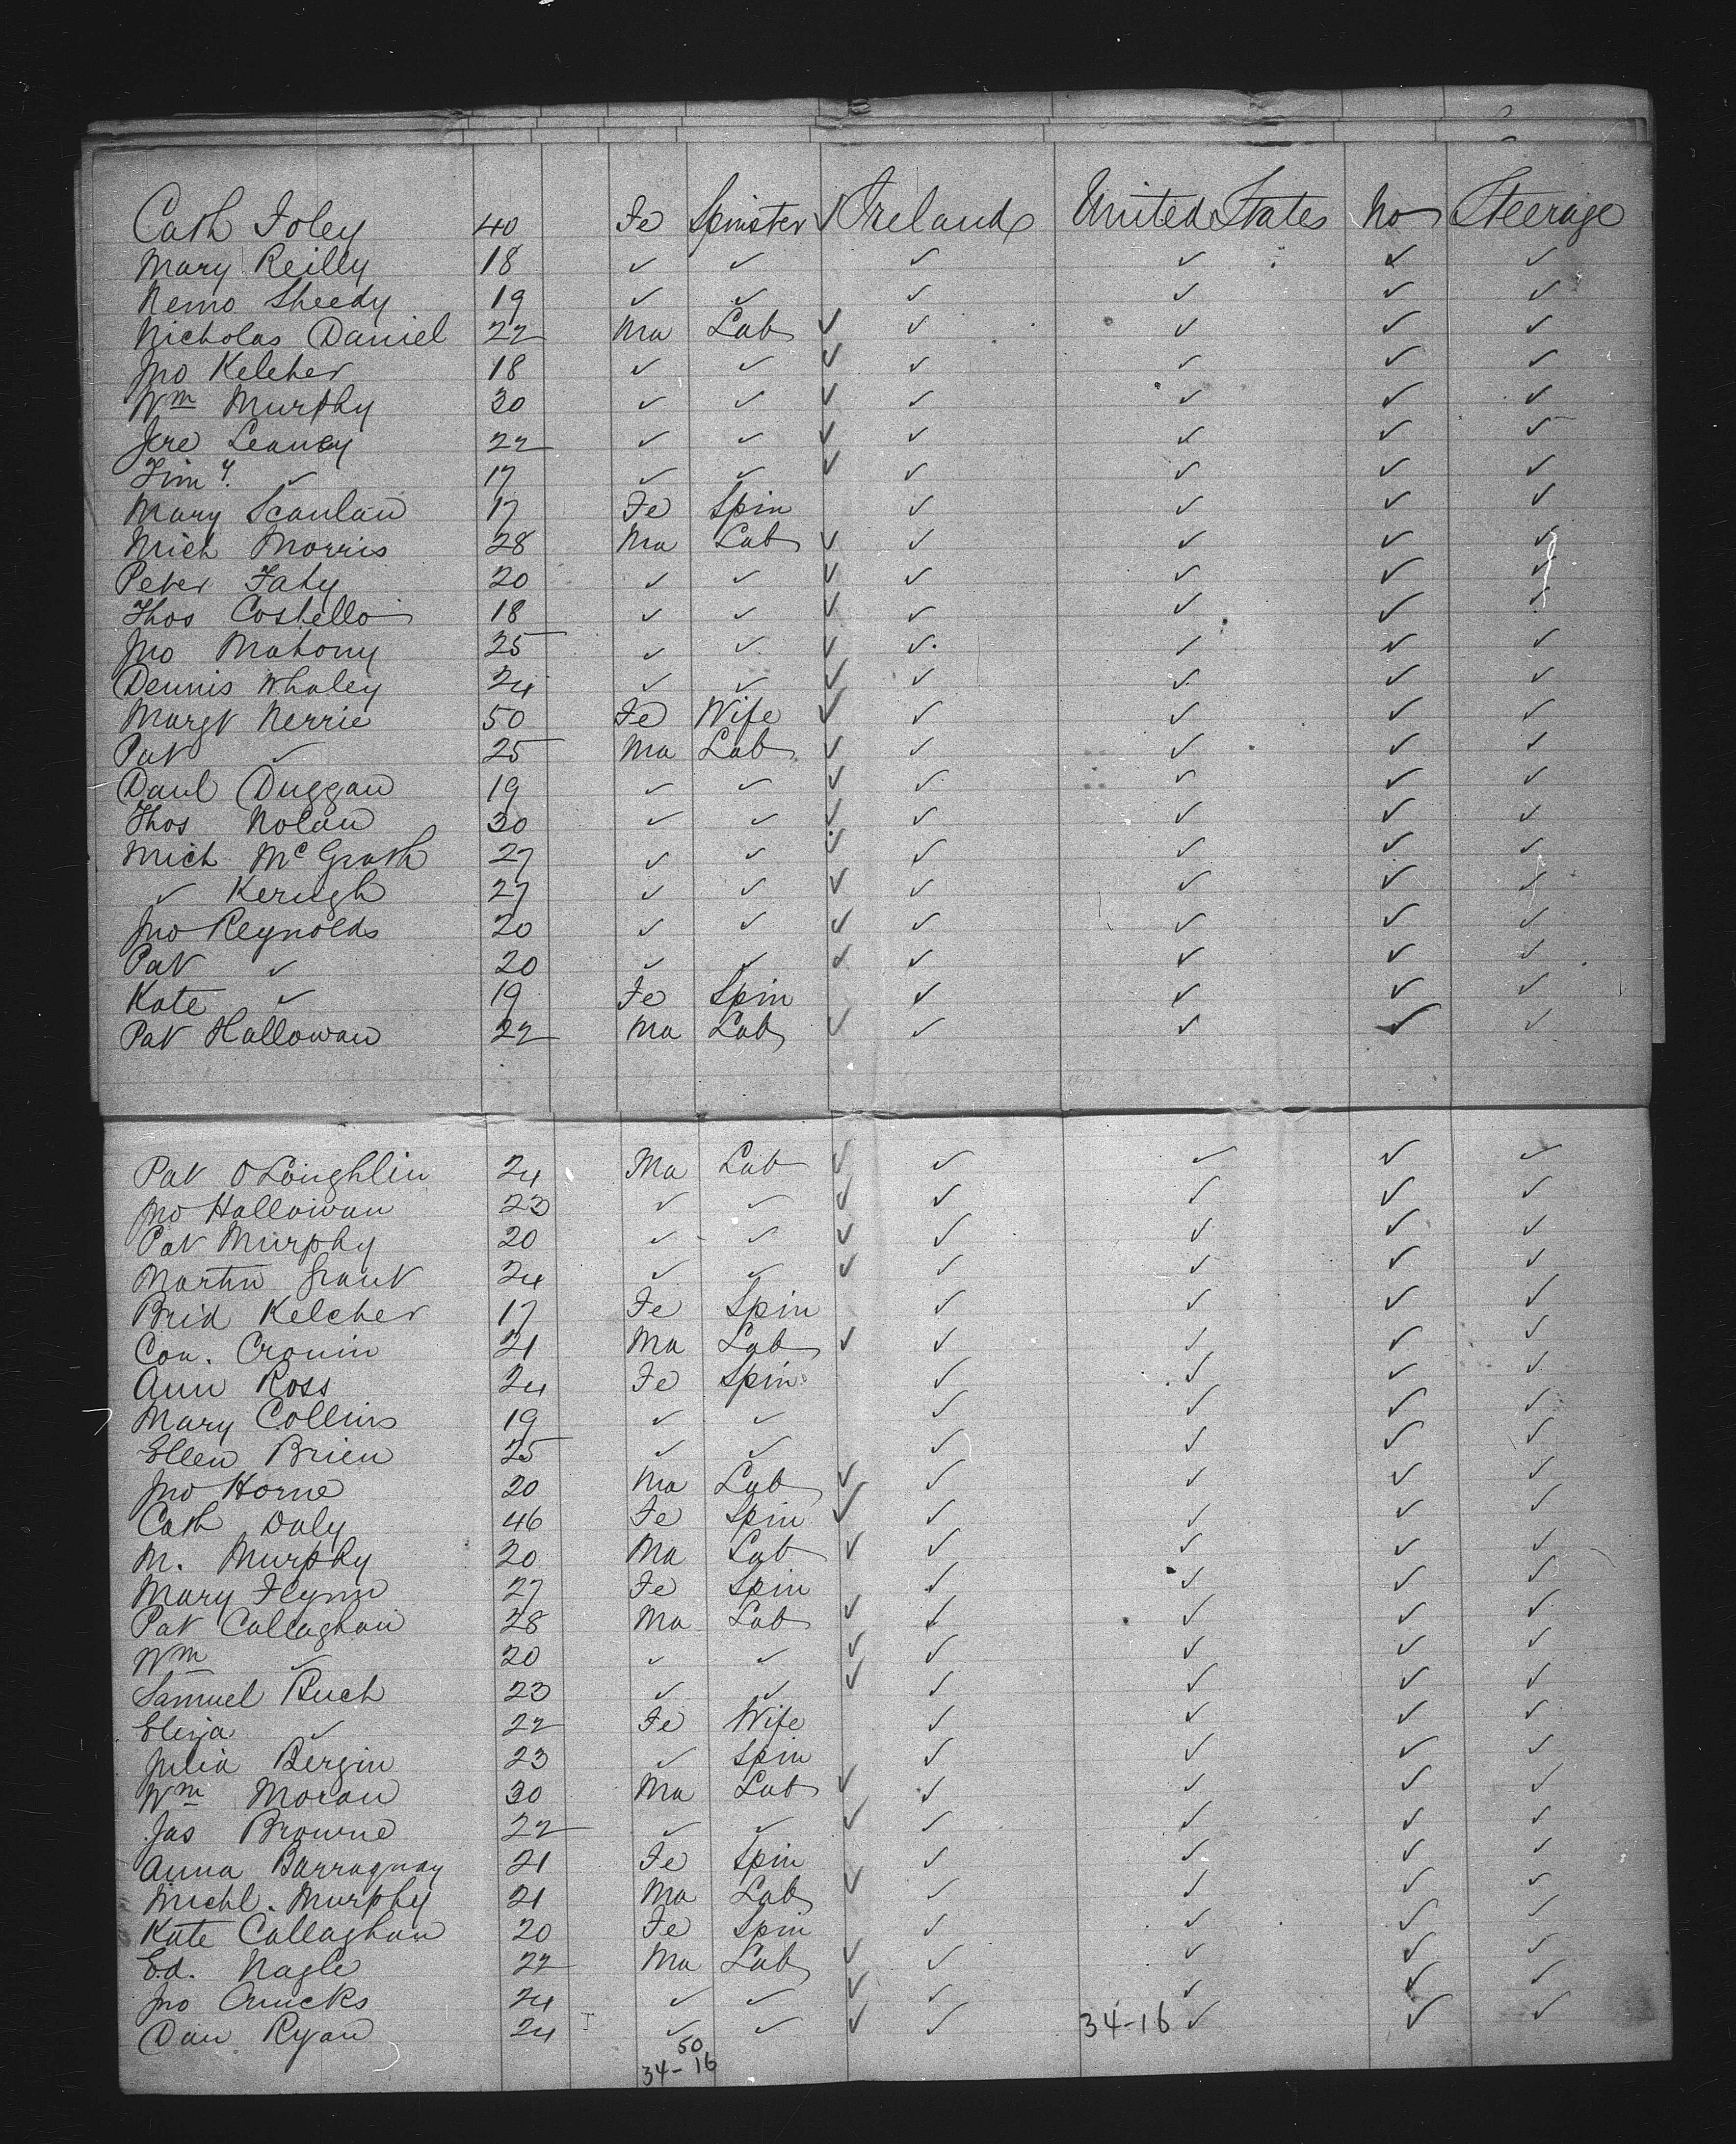 Cath Foley 40 Fe Spinster ✓ Ireland United States No Steerage
Mary Reilly 18 ✓ ✓ ✓ ✓ ✓ ✓
Nemo Sheedy 19 ✓ ✓ ✓ ✓ ✓ ✓
Nicholas Daniel 22 Ma Lab ✓ ✓ ✓ ✓ ✓
Jno Kelcher 18 ✓ ✓ ✓ ✓ ✓ ✓ ✓
Wm Murphy 30 ✓ ✓ ✓ ✓ ✓ ✓ ✓
Jere Leancy 22 ✓ ✓ ✓ ✓ ✓ ✓ ✓
Timy. ✓ 17 ✓ ✓ ✓ ✓ ✓ ✓ ✓
Mary Scanlan 17 Fe Spin ✓ ✓ ✓ ✓
Mich Morris 28 Ma Lab ✓ ✓ ✓ ✓ ✓
Peter Fahy 20 ✓ ✓ ✓ ✓ ✓ ✓ ✓
Thos Costello 18 ✓ ✓ ✓ ✓ ✓ ✓ ✓
Jno Mahony 25 ✓ ✓ ✓ ✓ ✓ ✓ ✓
Dennis Whaley 24 ✓ ✓ ✓ ✓ ✓ ✓ ✓
Margt Nerrie 50 Fe Wife ✓ ✓ ✓ ✓ ✓
Pat ✓ 25 Ma Lab ✓ ✓ ✓ ✓ ✓
Danl Duggan 19 ✓ ✓ ✓ ✓ ✓ ✓ ✓
Thos Nolan 30 ✓ ✓ ✓ ✓ ✓ ✓ ✓
Mich McGrath 27 ✓ ✓ ✓ ✓ ✓ ✓ ✓
✓ Kerugh 27 ✓ ✓ ✓ ✓ ✓ ✓ ✓
Jno Reynolds 20 ✓ ✓ ✓ ✓ ✓ ✓ ✓
Pat ✓ 20 ✓ ✓ ✓ ✓ ✓ ✓ ✓
Kate ✓ 19 Fe Spin ✓ ✓ ✓ ✓
Pat Hallowan 22 Ma Lab ✓ ✓ ✓ ✓ ✓
Pat O Loughlin 24 Ma Lab ✓ ✓ ✓ ✓ ✓
Jno Hallowan 23 ✓ ✓ ✓ ✓ ✓ ✓ ✓
Pat Murphy 20 ✓ ✓ ✓ ✓ ✓ ✓ ✓
Martin Grant 24 ✓ ✓ ✓ ✓ ✓ ✓ ✓
Brid Kelcher 17 Fe Spin ✓ ✓ ✓ ✓
Con. Cronin 21 Ma Lab ✓ ✓ ✓ ✓ ✓
Ann Ross 24 Fe Spin ✓ ✓ ✓ ✓
Mary Collins 19 ✓ ✓ ✓ ✓ ✓ ✓
Ellen Brien 25 ✓ ✓ ✓ ✓ ✓ ✓
Jno Horne 20 Ma Lab ✓ ✓ ✓ ✓ ✓
Cath Daly 46 Fe Spin ✓ ✓ ✓ ✓ ✓
M. Murphy 20 Ma Lab ✓ ✓ ✓ ✓ ✓
Mary Flynn 27 Fe Spin ✓ ✓ ✓ ✓
Pat Callaghan 28 Ma Lab ✓ ✓ ✓ ✓ ✓
Wm ✓ 20 ✓ ✓ ✓ ✓ ✓ ✓ ✓
Samuel Ruch 23 ✓ ✓ ✓ ✓ ✓ ✓ ✓
Eliza ✓ 22 Fe Wife ✓ ✓ ✓ ✓
Julia Bergin 23 ✓ Spin ✓ ✓ ✓ ✓
Wm Moran 30 Ma Lab ✓ ✓ ✓ ✓ ✓
Jas Browne 22 ✓ ✓ ✓ ✓ ✓ ✓ ✓
Anna Barraqnay 21 Fe Spin ✓ ✓ ✓ ✓
Michl. Murphy 21 Ma Lab ✓ ✓ ✓ ✓ ✓
Kate Callaghan 20 Fe Spin ✓ ✓ ✓ ✓
Ed. Nagle 22 Ma Lab ✓ ✓ ✓ ✓ ✓
Jno 24 ✓ ✓ ✓ ✓ ✓ ✓ ✓
Dan Ryan 24 ✓ ✓ ✓ ✓ 34-16 ✓ ✓ ✓
50
34-16